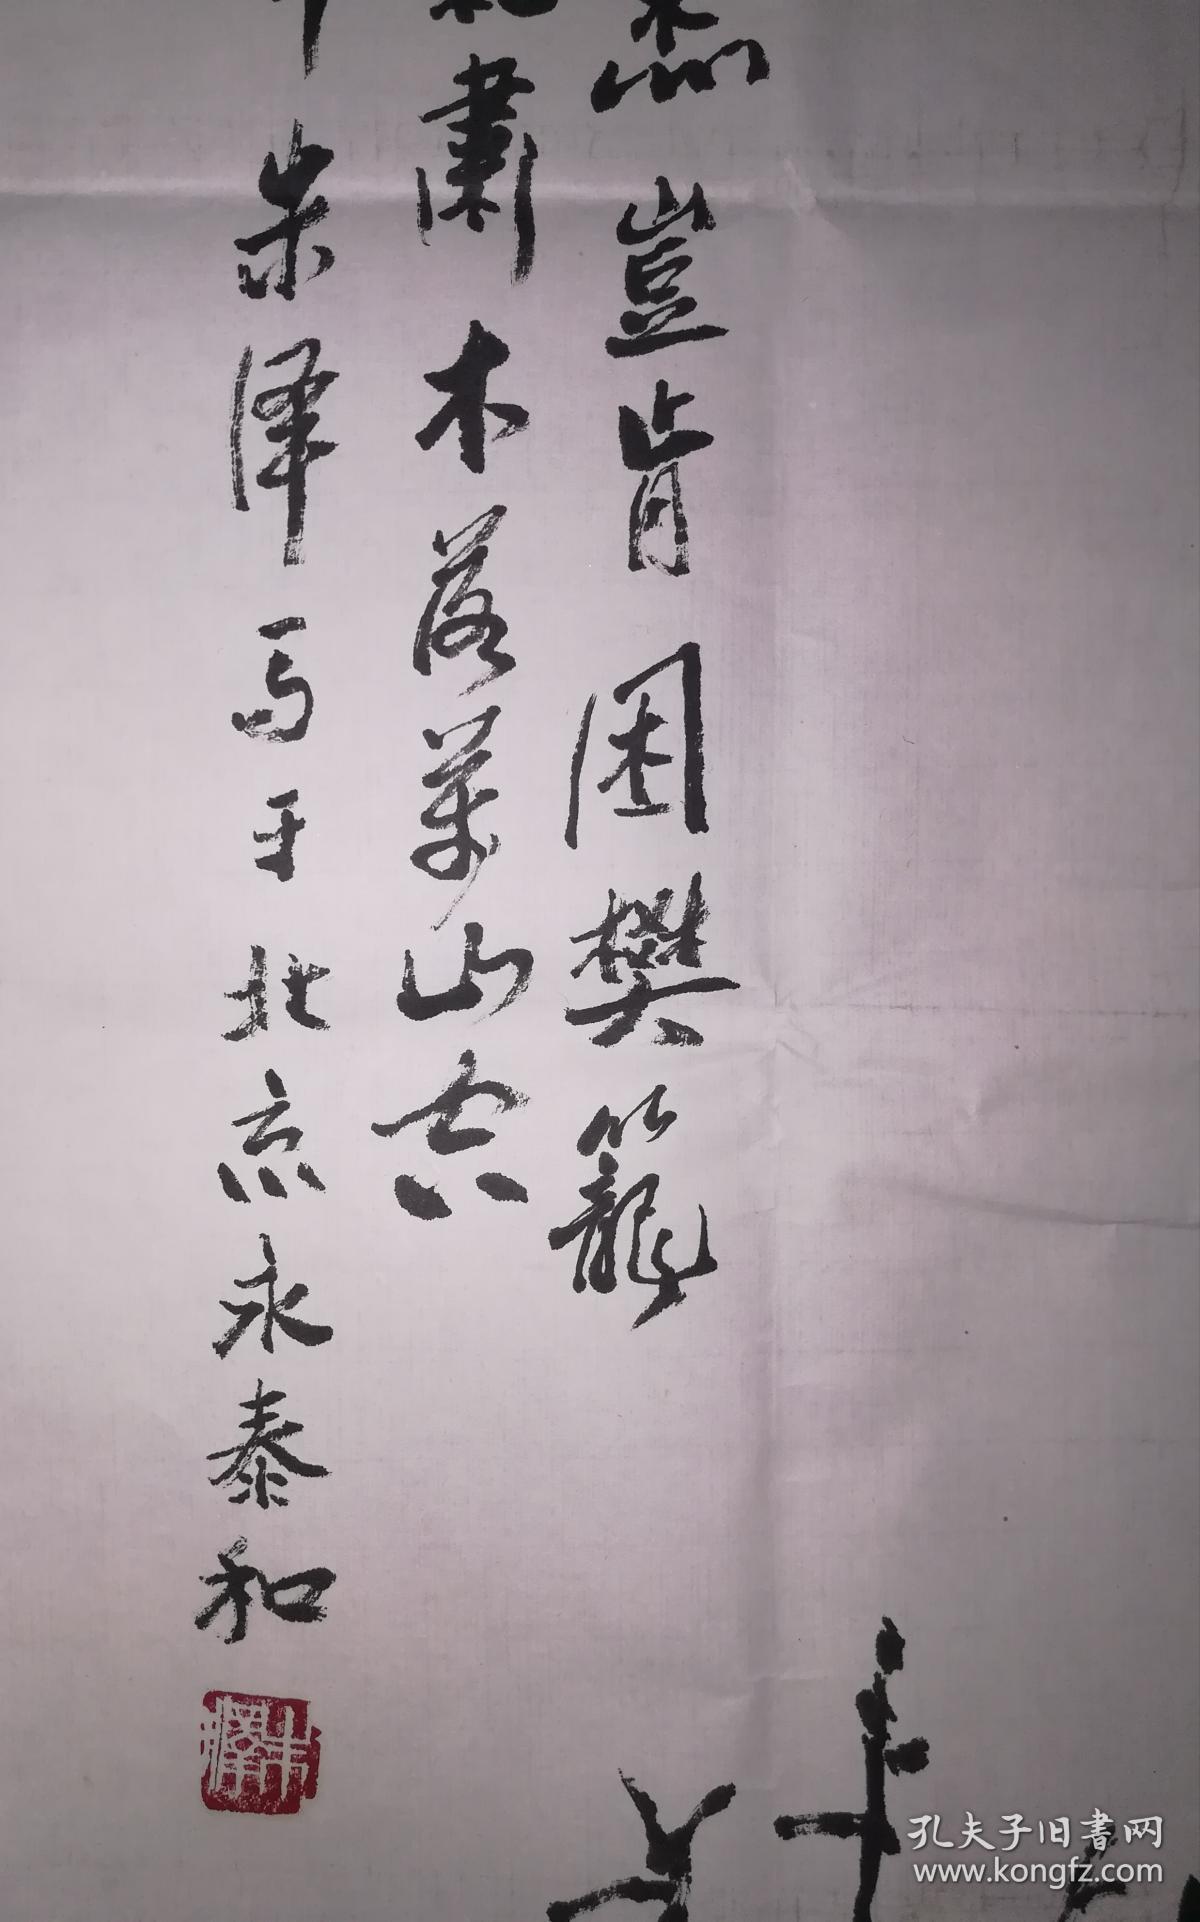 豈肯困樊籠
肅木落萬山空
朱泽写于北京永泰和
朱澤
孔夫子旧書网
www.kongfz.com